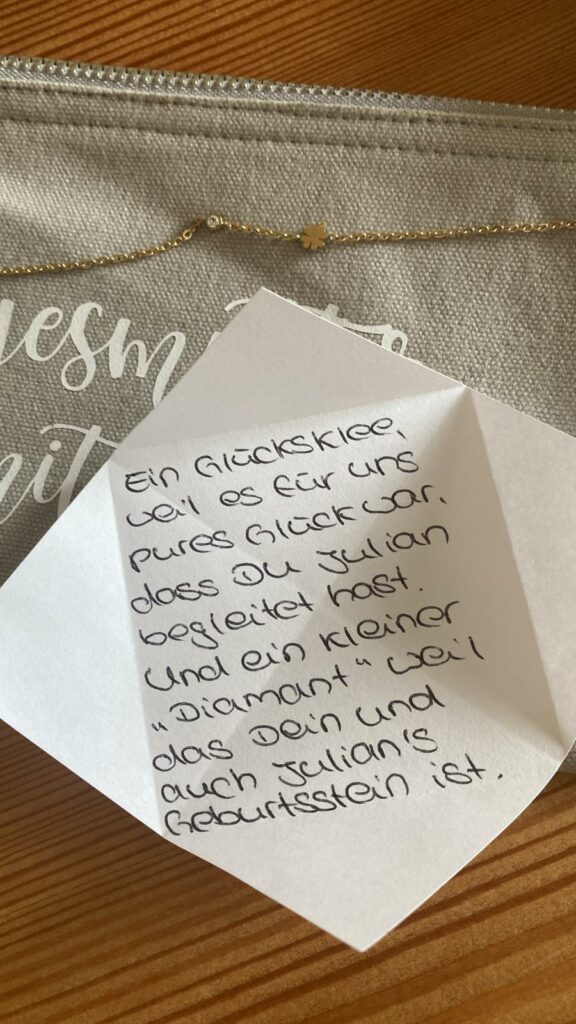 Ein Glücksklee,
weil es für uns
pures Glück war,
dass Du Julian
begleitet hast.
Und ein kleiner
„Diamant“ weil
das Dein und
auch Julian's
Geburtsstein ist.